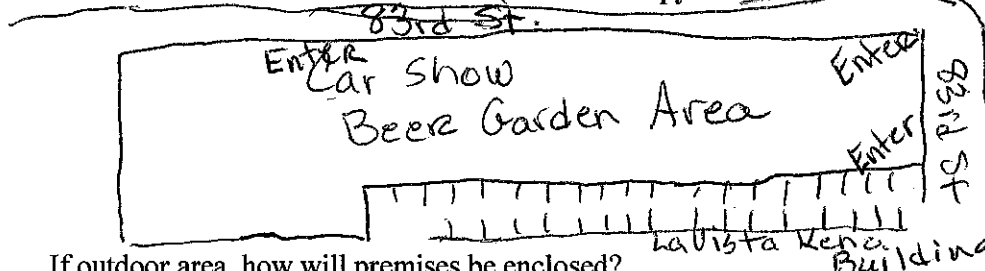 83rd St.
Enter
Enter
Car Show
Beer Garden Area
Enter
83rd St
LaVista Keno
Building
If outdoor area, how will premises be enclosed?